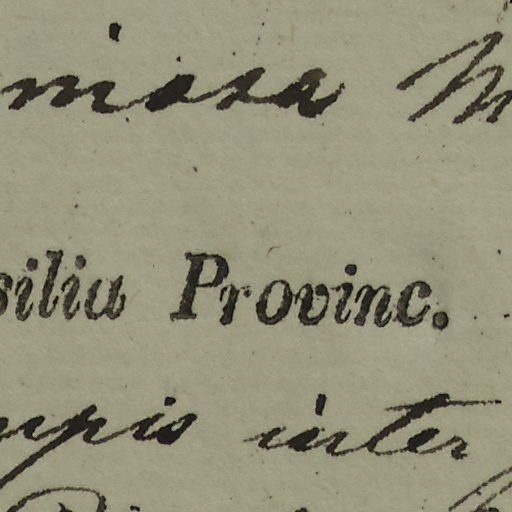 miosa M
silia Provinc.
mpis inter